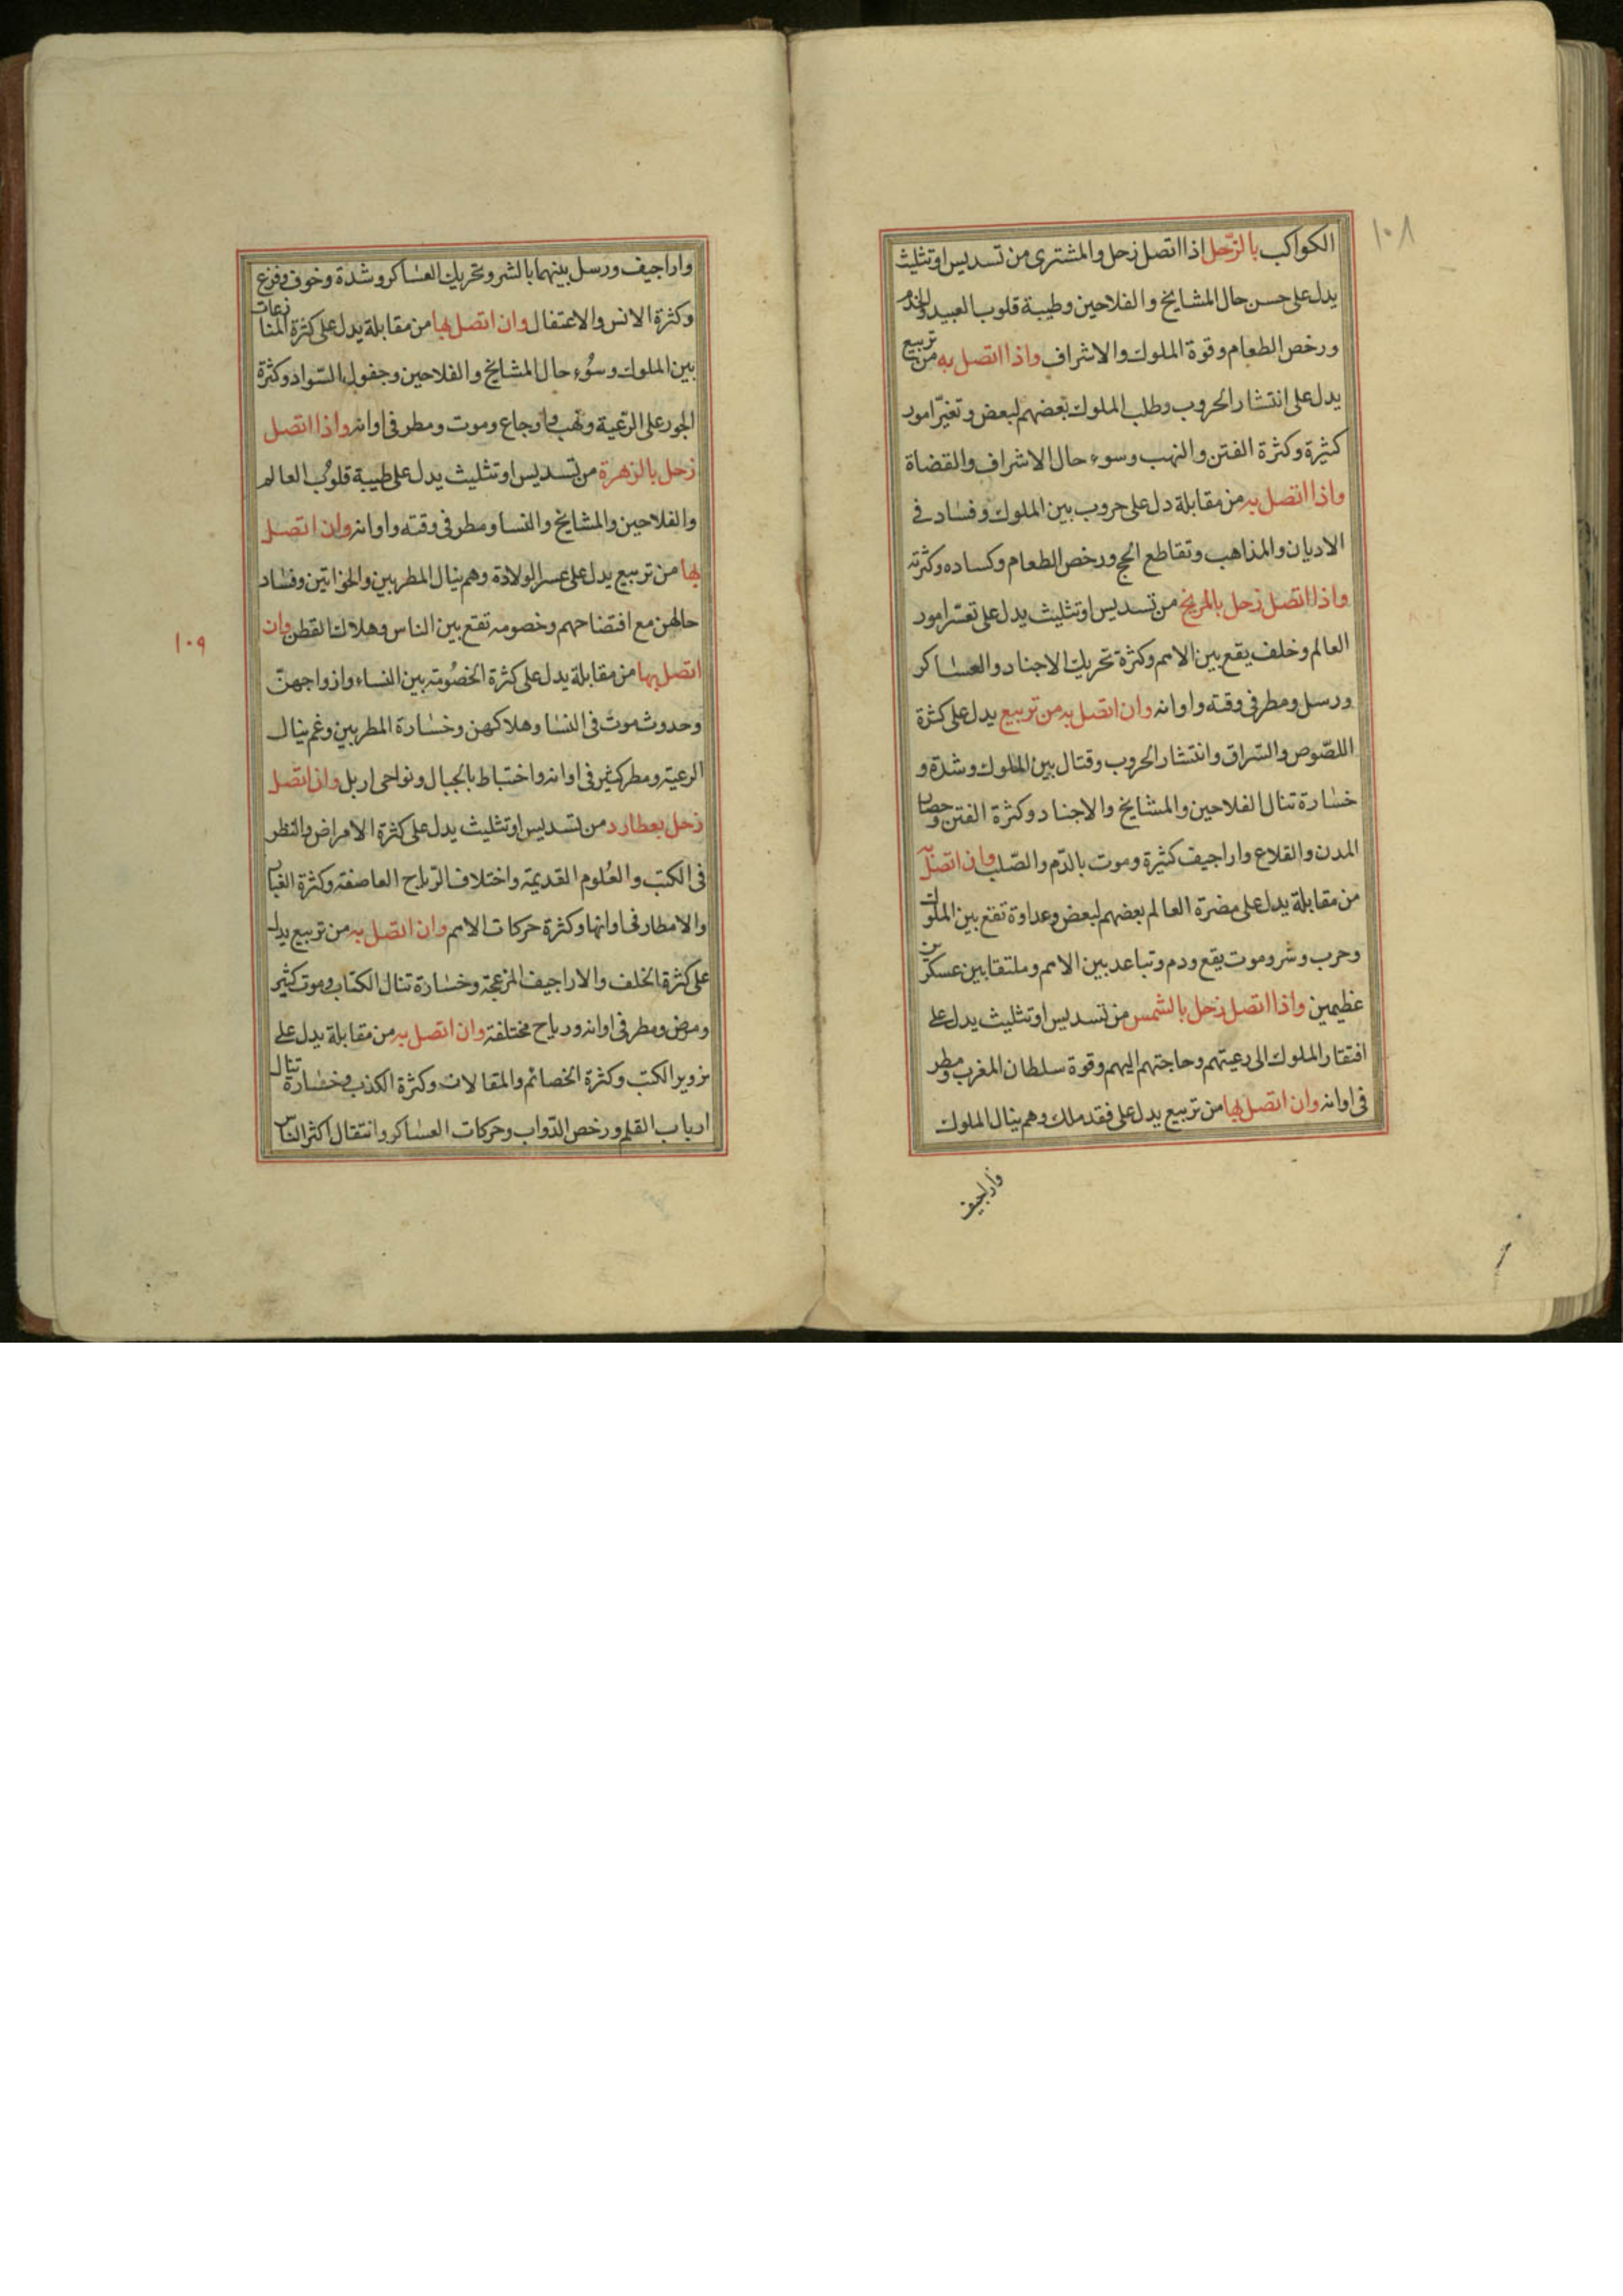 ١٠٨
الكواكب بالزّحل اذا اتصل زحل والمشترى من تسديس او تثليث
يدل على حسن حال المشايخ والفلاحين وطيبة قلوب العبيد والخدم
ورخص الطعام وقوة الملوك والاشراف واذا اتصل به من تربيع
يدل على انتشار الحروب وطلب الملوك بعضهم لبعض وتغيّر امور
كثيرة وكثرة الفتن والنهب وسوء حال الاشراف والقضاة
واذا اتصل به من مقابلة دل على حروب بين الملوك وفساد فى
الاديان والمذاهب وتقاطع الحج ورخص الطعام وكساده وكثرته
واذا اتصل زحل بالمريخ من تسديس او تثليث يدل على تعسّر امور
العالم وخلف يقع بين الامم وكثرة تحريك الاجناد والعساكر
ورسل ومطر فى وقته واوانه وان اتصل به من تربيع يدل على كثرة
اللصّوص والسّراق وانتشار الحروب وقتال بين الملوك وشدة و
خسارة تنال الفلاحين والمشايخ والاجناد وكثرة الفتن وحصار
المدن والقلاع واراجيف كثيرة وموت بالدّم والصّلب وان اتصل به
من مقابلة يدل على مضرة العالم بعضهم لبعض وعداوة تقع بين الملوك
وحرب وشر وموت يقع ودم وتباعد بين الامم وملتقا بين عسكرين
عظيمين واذا اتصل زحل بالشمس من تسديس او تثليث يدل على
افتقار الملوك الى رعيتهم وحاجتهم اليهم وقوة سلطان المغرب ومطر
فى اوانه وان اتصل بها من تربيع يدل على فقد ملك وهم ينال الملوك
واراجيف
واراجيف ورسل بينهما بالشر وتحريك العساكر وشدة وخوف وفزع
وكثرة الانس والاعتقال وان اتصل بها من مقابلة يدل على كثرة المنازعات
بين الملوك وسُوء حال المشايخ والفلاحين وجفول السّواد وكثرة
الجور على الرّعية ونهب واوجاع وموت ومطر فى اوانه واذا اتصل
زحل بالزهرة من تسديس او تثليث يدل على طيبة قلوب العالم
والفلاحين والمشايخ والنسا ومطر فى وقته واوانه وان اتصل
بها من تربيع يدل على عسر الولادة وهم ينال المطربين والخواتين وفساد
حالهن مع افتضاحهم وخصومه تقع بين الناس وهلاك القطن وان
اتصل بها من مقابلة يدل على كثرة الخصُومة بين النساء وازواجهنّ
وحدوث موت فى النسا وهلاكهن وخسارة المطربين وغم ينال
الرعية ومطر كثير فى اوانه واختباط بالجبال ونواحى اربل واذا اتصل
زحل بعطارد من تسديس او تثليث يدل على كثرة الامراض والنظر
فى الكتب والعُلوم القديمة واختلاف الرّياح العاصفة وكثرة الغبار
والامطار فى اوانها وكثرة حركات الامم وان اتصل به من تربيع يدل
على كثرة الخلف والاراجيف المزعجة وخسارة تنال الكتاب وموت كثير
ومرض ومطر فى اوانه ورياح مختلفة وان اتصل به من مقابلة يدل على
تزوير الكتب وكثرة الخصائم والمقالات وكثرة الكذب وخسارة تنال
ارباب القلم ورخص الدّواب وحركات العساكر وانتقال اكثر الناس
١٠٩